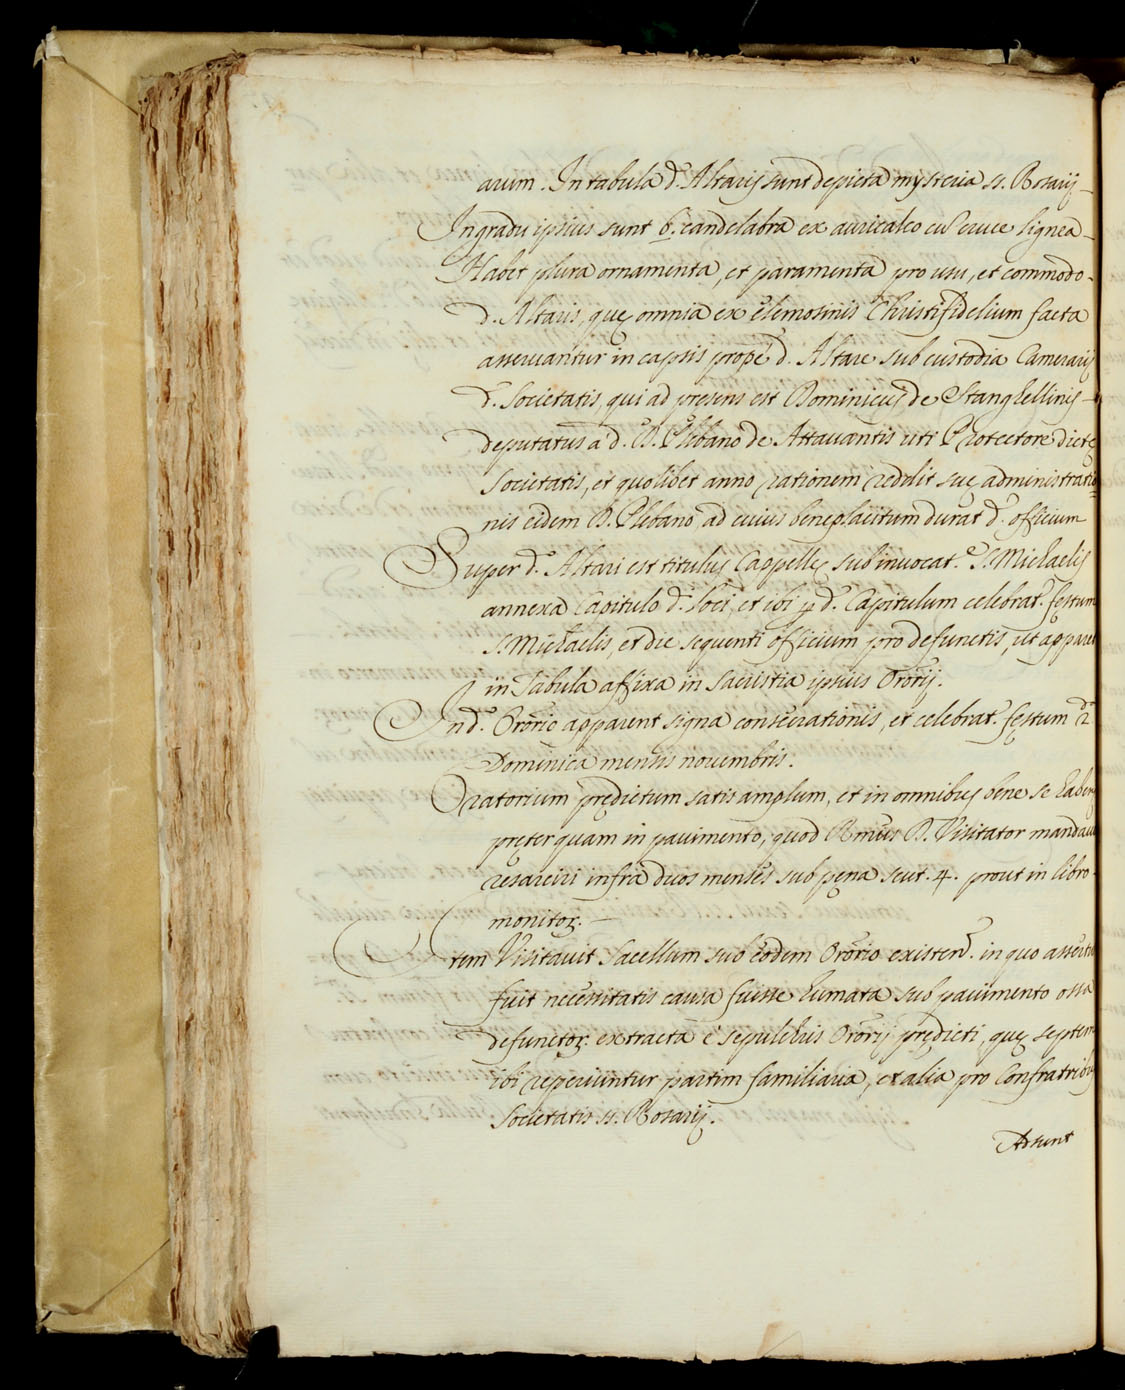 arum. In tabula d. Altaris sunt depicta mysteria ss. Rosarij
In gradu ipsius sunt 6. candelabra ex auricalco cu cruce lignea
Habet plura ornamenta, et paramenta pro usu, et commodo
d. Altaris, quę omnia ex elemosinis Christifidelium facta
asservantur in capsis propè d. Altare sub custodia Camerarij
d. Societatis, qui ad presens est Dominicus de Stanghellinis
deputatus a d. D. Plebano de Attavantis uti Protectore dictę
Societatis, et quolibet anno rationem reddit suę administratio
nis eidem D. Plebano ad cuius beneplacitum durat d. officium
Super d. Altari est titulus Cappellę sub invocat.e S. Michaelis
annexa Capitulo d. loci, et ibi p d. Capitulum celebrat. festum
S. Michaelis, et die sequenti officium pro defunctis, ut apparet
in Tabula affixa in Sacristia ipsius Orõrij.
In d. Orõrio apparent signa consecrationis, et celebrat. festum 2.a
Dominica mensis novembris.
Oratorium prędictum satis amplum, et in omnibus bene se haber
pręterquam in pavimento, quod R.mus D. Visitator mandavit
resarciri infra duos menses sub pęna scut. 4. prout in libro
monitor.
Item Visitavit Sacellum sub eodem Orõrio existen. in quo assertum
fuit necessitatis causa fuisse humata sub pavimento ossa
defunctor. extracta è sepulchris Orõrij prędicti, quę septem
ibi reperiuntur partim familiaria, et alia pro Confratribus
Societatis ss. Rosarij.
Adsunt